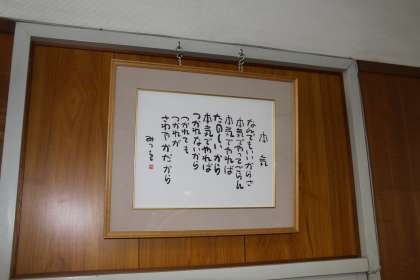 本気
なんでもいいからさ
本気でやってごらん
本気でやれば
たのしいから
本気でやれば
つかれないから
つかれても
つかれが
さわやかだから
みつを